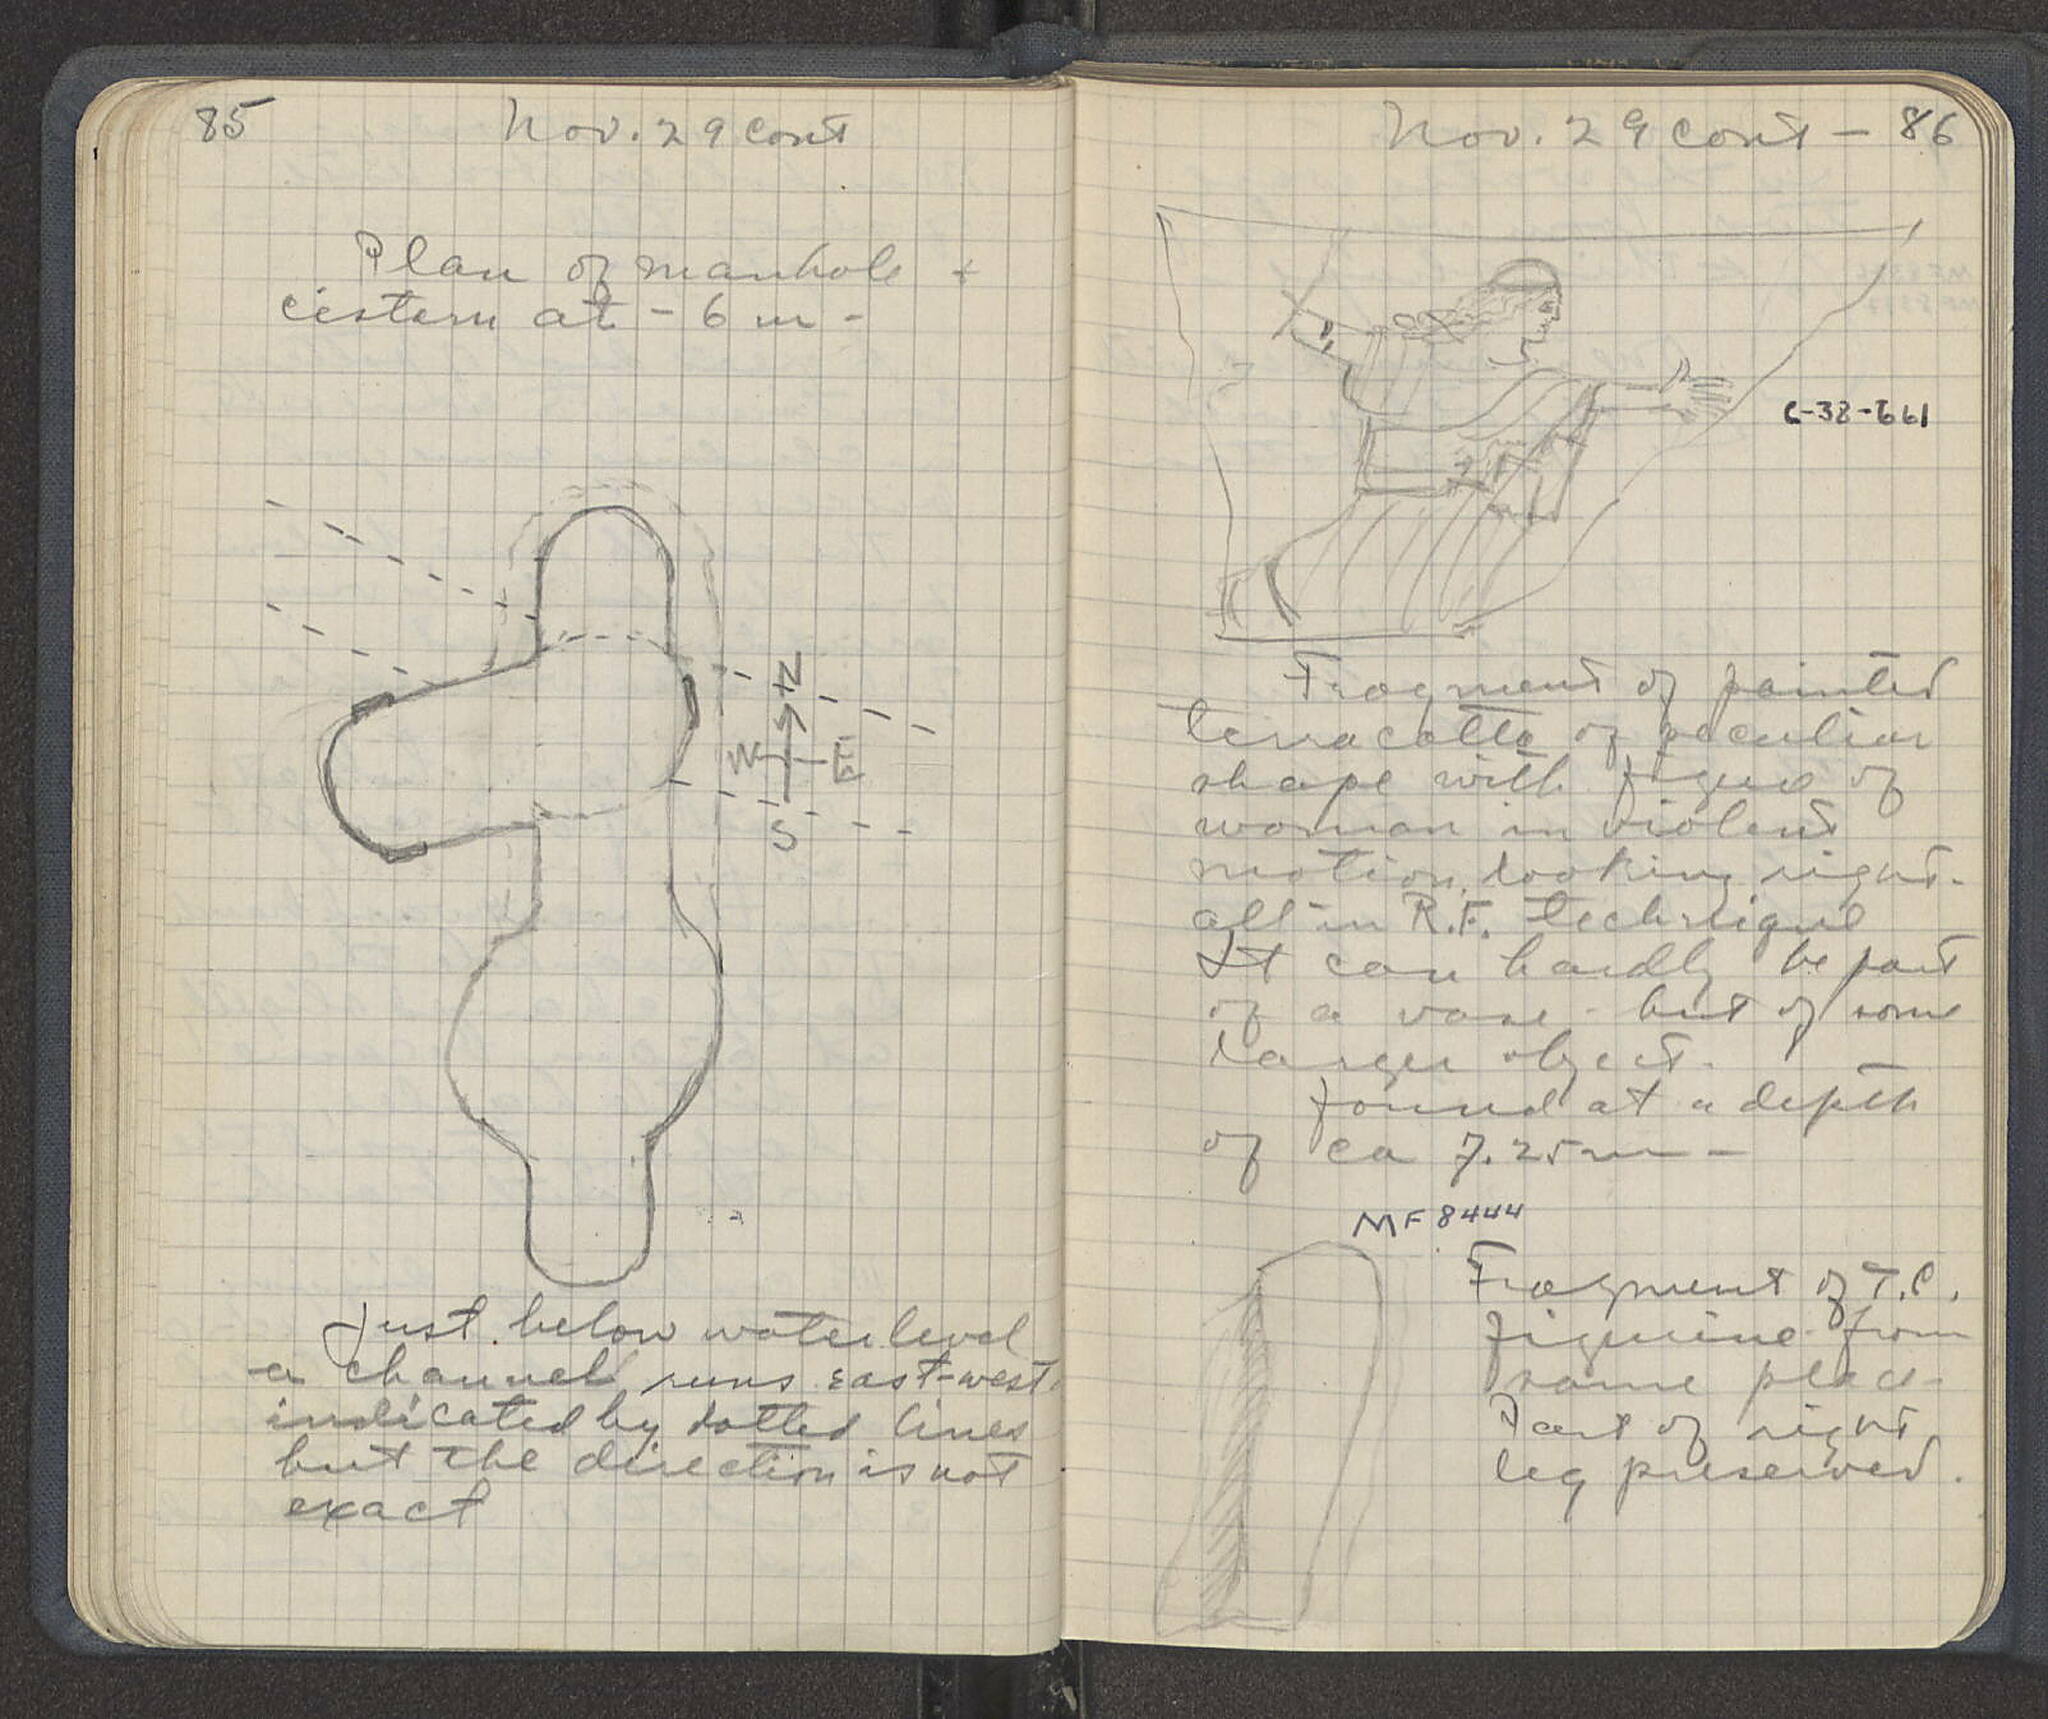 85 Nov. 29 cont
Plan of manhole +
cistern at - 6 m -
N
W E
S
Just below water level
a channel runs east-west
indicated by dotted lines
but the direction is not
exact
Nov. 29 cont - 86
C-38-661
Fragment of painted
terracotta of peculiar
shape with figure of
woman in violent
motion, looking right.
all in R.F. technique
It can hardly be part
of a vase - but of some
larger object.
found at a depth
of ca 7.25 m -
MF 8444
Fragment of T.C.
figurine from
same place -
Part of right
leg preserved.